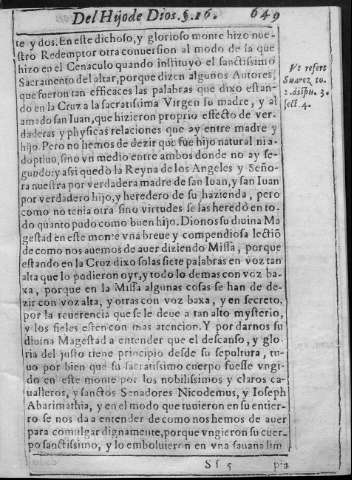 Del Hijo de Dios. §. 16. 649
te y dos. En este dichoso, y glorioso monte hizo nue-
stro Redemptor otra conuersion al modo de la que
hizo en el Cenaculo quando instituyò el sanctissimo
Sacramento del altar, porque dizen algunos Autores,
que fueron tan efficaces las palabras que dixo estan-
do en la Cruz a la sacratissima Virgen su madre, y al
amado san Iuan, que hizieron proprio effecto de ver-
daderas y physicas relaciones que ay entre madre y
hijo. Pero no hemos de dezir que fue hijo natural ni a-
doptiuo, sino vn medio entre ambos donde no ay se-
gundo: y assi quedò la Reyna de los Angeles y Seño-
ra nuestra por verdadera madre de san Iuan, y san Iuan
por verdadero hijo, y heredero de su hazienda, pero
como no tenia otra sino virtudes se las heredò en to-
do quanto pudo como buen hijo. Dionos su diuina Ma
gestad en este monte vna breue y compendiosa lectiõ
de como nos auemos de auer diziendo Missa, porque
estando en la Cruz dixo solas siete palabras en voz tan
alta que lo pudieron oyr, y todo lo demas con voz ba-
xa, porque en la Missa algunas cosas se han de de-
zir con voz alta, y otras con voz baxa, y en secreto,
por la reuerencia que se le deue a tan alto mysterio,
y los fieles esten con mas atencion. Y por darnos su
diuina Magestad a entender que el descanso, y glo-
ria del justo tiene principio desde su sepultura, tu-
uo por bien que su sacratissimo cuerpo fuesse vngi-
do en este monte por los nobilissimos y claros ca-
ualleros, y sanctos Senadores Nicodemus, y Ioseph
Abarimathia, y en el modo que tuuieron en su entier-
ro se nos da a entender de como nos hemos de auer
para comulgar dignamente, porque vngieron su cuer-
po sanctissimo, y lo emboluieron en vna sauana lim
Sſ 5
pia
Vt refert
Suarez to.
2. disput. 3.
sect. 4.